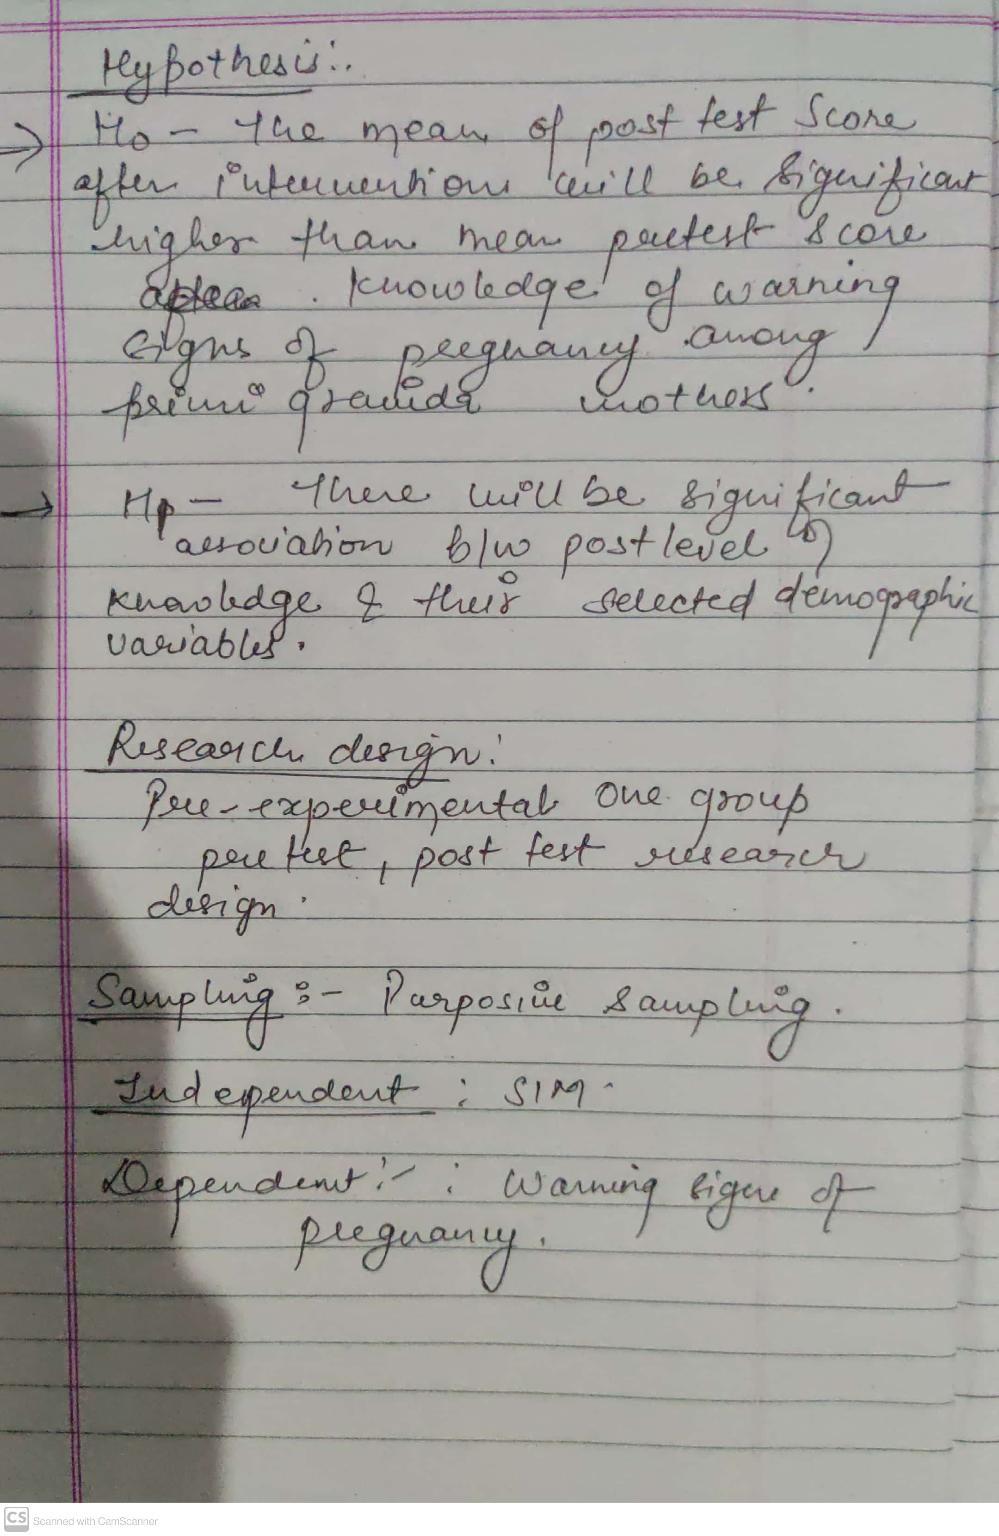 Hypothesis:.
→ H0 - The mean of post test Score
after interventions will be significant
higher than mean pretest score
. knowledge of warning
signs of pregnancy among
primi gravida mothers.
→ H1 - There will be significant
association b/w post level of
knowledge & their selected demographic
variables.
Research design:
Pre-experimental one group
pre test, post test research
design.
Sampling :- Purposive sampling.
Independent : SIM.
Dependent:- : Warning signs of
pregnancy.
CS Scanned with CamScanner